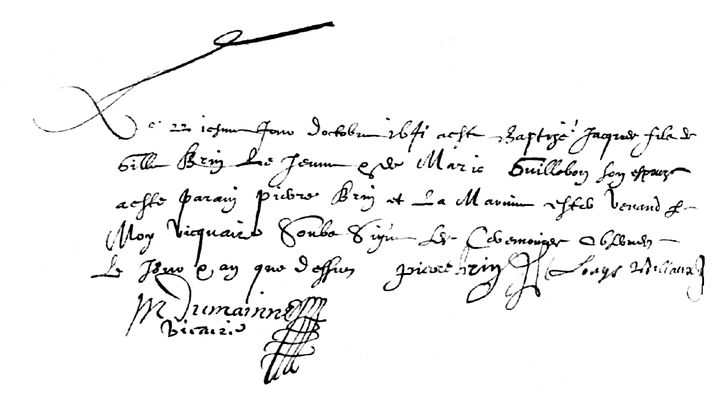 Le 22 iesme Jour doctobre 1641 a este Baptize Jacques filz de
Gille Brin Le Jeune & de Marie Guillebon son espouze
a este parain pierre Brin et La Maraine
Moy vicquaire Soubz Signe Les Ceremonies observees
Le Jour & an que dessus pierre brin Louys
M Dumainne
vicaire